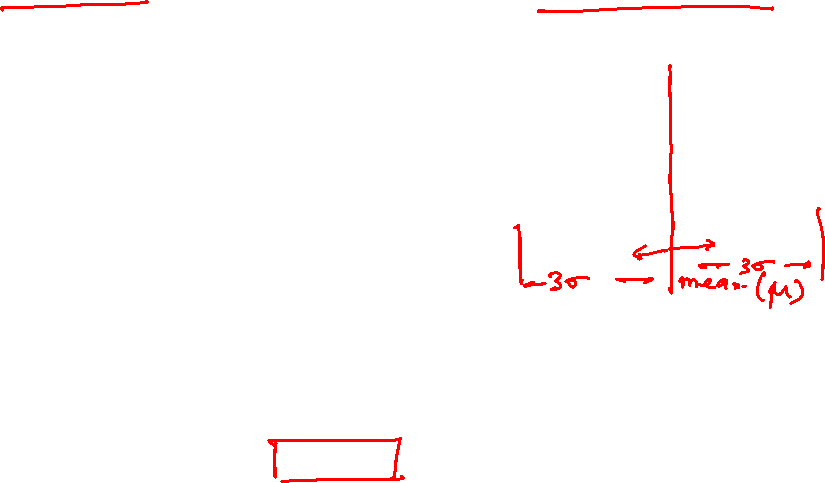 3σ
3σ
mean (μ)